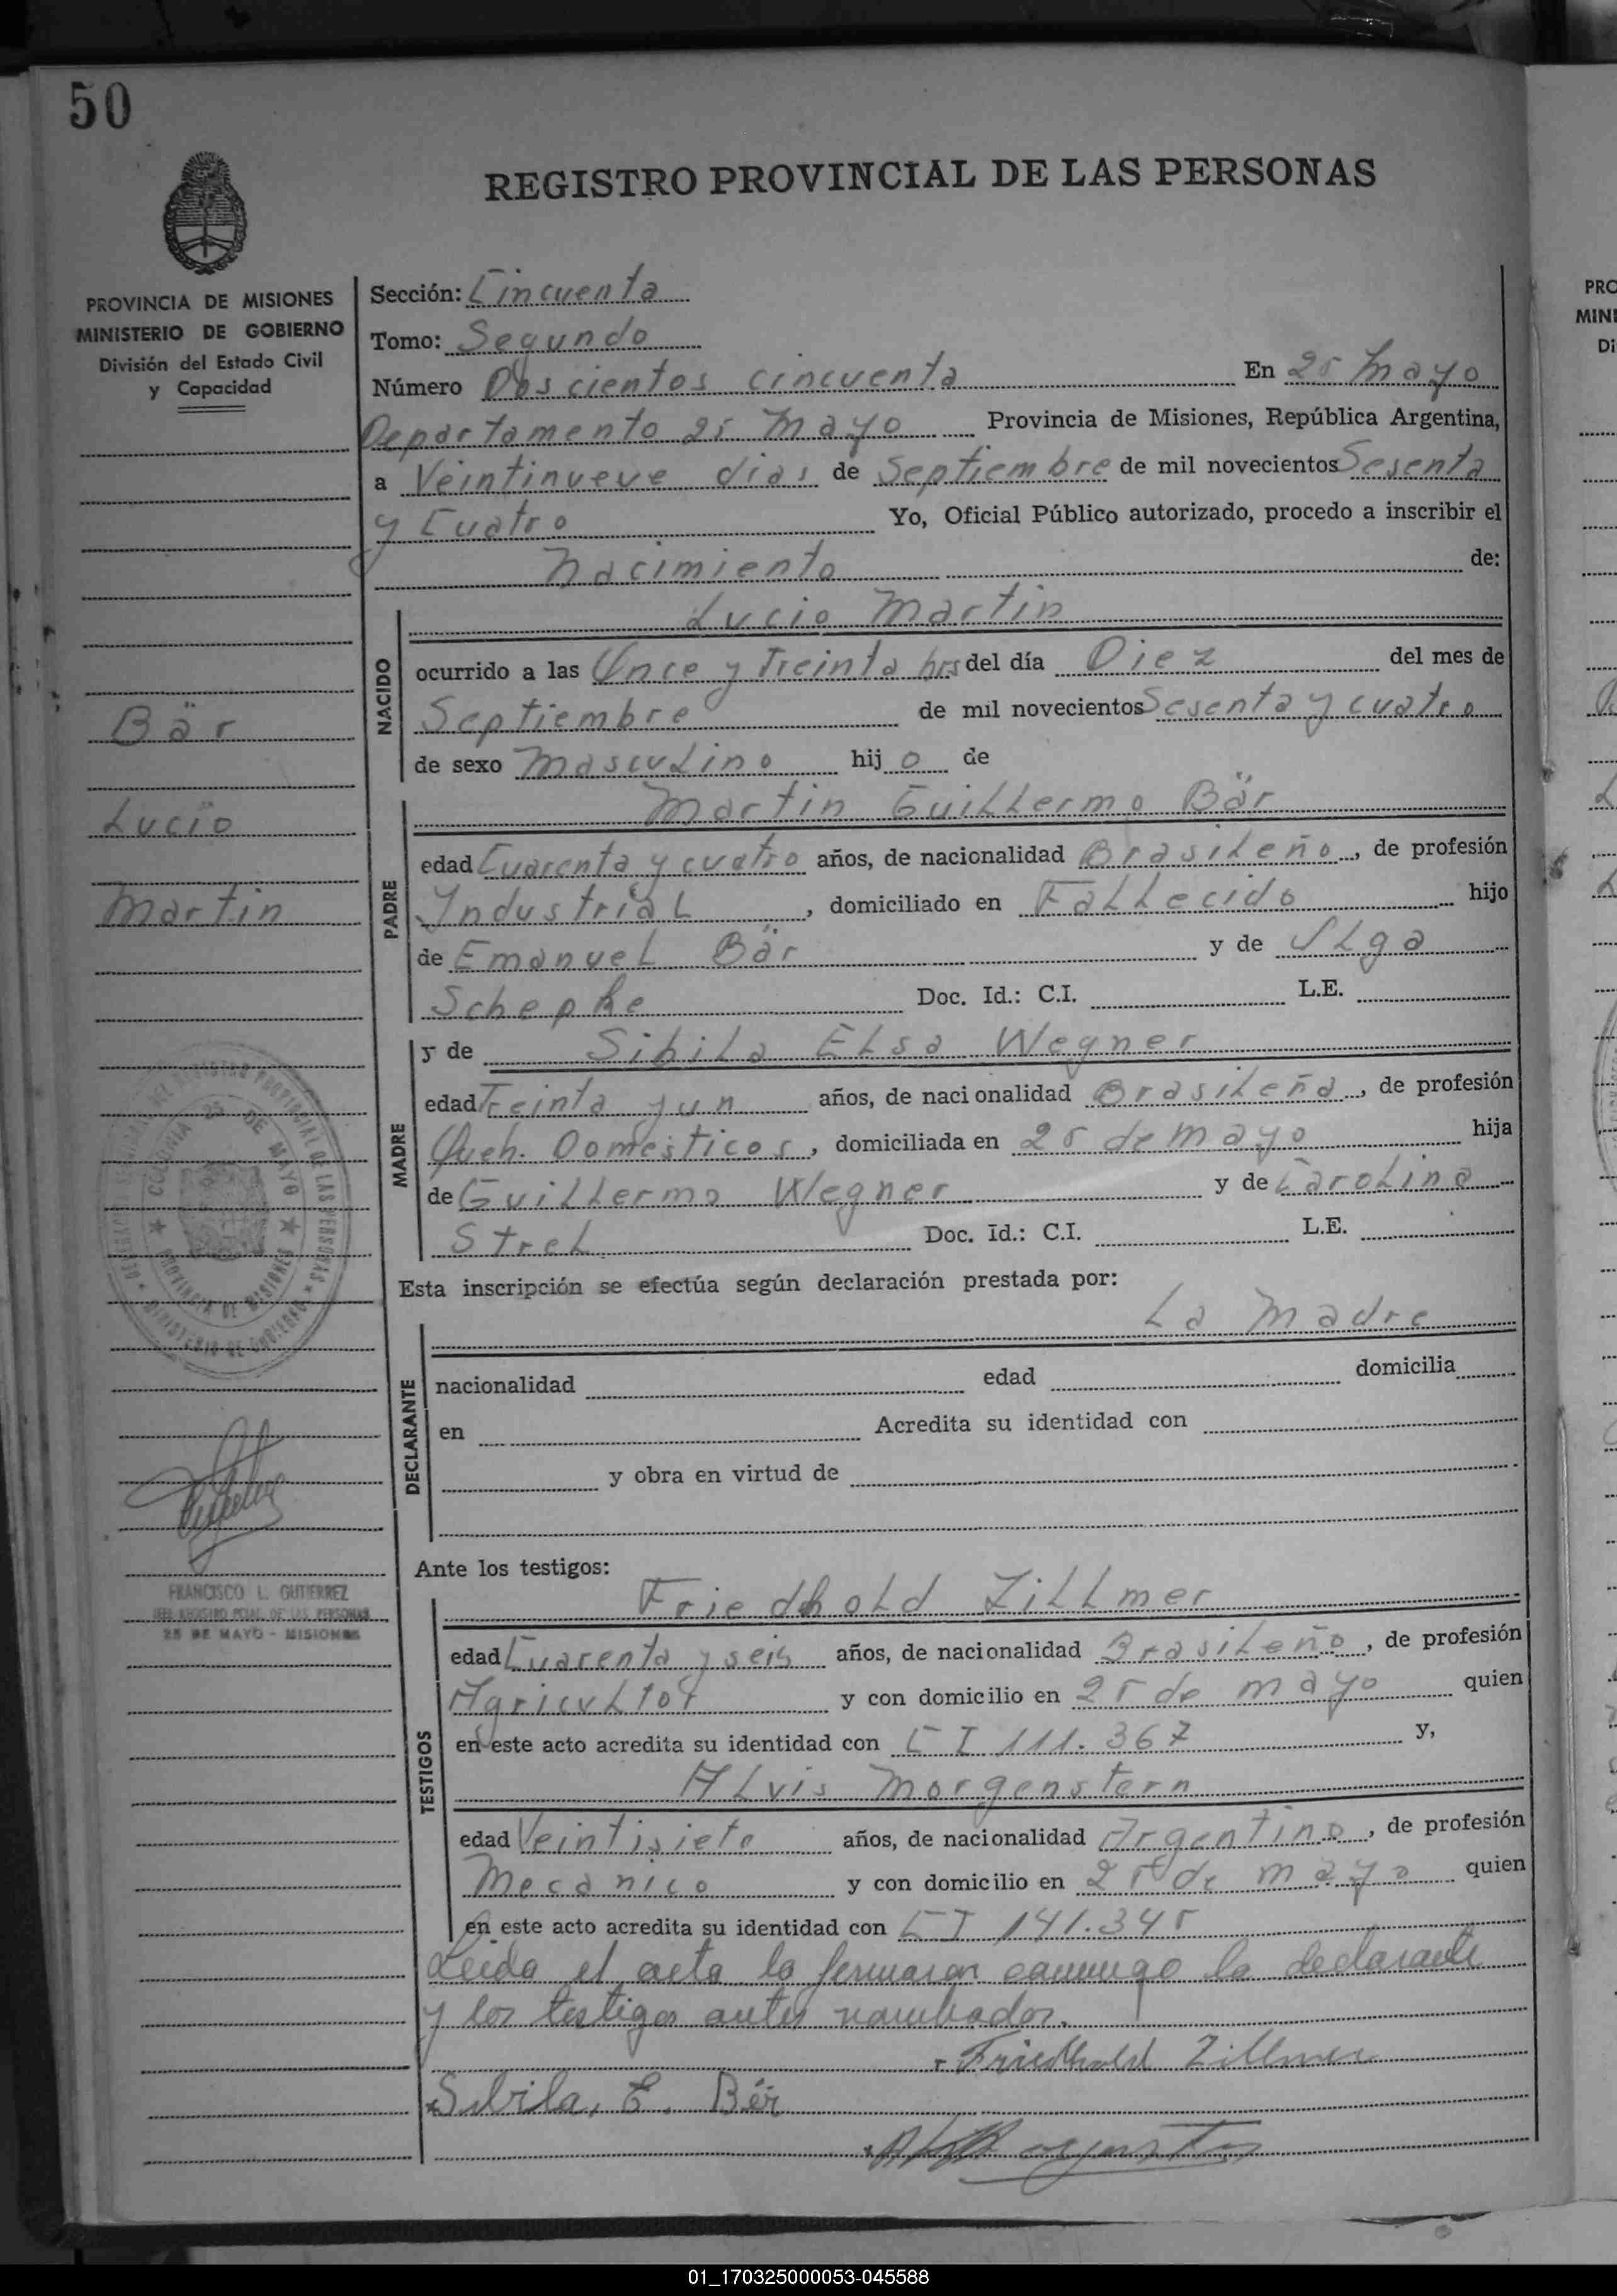 50
REGISTRO PROVINCIAL DE LAS PERSONAS
PROVINCIA DE MISIONES
MINISTERIO DE GOBIERNO
División del Estado Civil
y Capacidad
Bär
Lucio
Martin
COLONIA 25 DE MAYO
PROVINCIA DE MISIONES
FRANCISCO L. GUTIERREZ
JEFE REGISTRO PCIAL. DE LAS PERSONAS
25 DE MAYO - MISIONES
Sección: Cincuenta
Tomo: Segundo
Número Doscientos cincuenta En 25 Mayo
Departamento 25 Mayo Provincia de Misiones, República Argentina,
a Veintinueve dias de Septiembre de mil novecientos Sesenta
y Cuatro Yo, Oficial Público autorizado, procedo a inscribir el
Nacimiento de:
NACIDO
Lucio Martin
ocurrido a las Once y Treinta hrs del día Diez del mes de
Septiembre de mil novecientos Sesenta y cuatro
de sexo Masculino hij o de
PADRE
Martin Guillermo Bär
edad Cuarenta y cuatro años, de nacionalidad Brasileño, de profesión
Industrial, domiciliado en Fallecido hijo
de Emanuel Bär y de Olga
Schepke Doc. Id.: C.I. L.E.
MADRE
y de Sibila Elsa Wegner
edad Treinta y un años, de nacionalidad Brasileña, de profesión
Queh. Domésticos, domiciliada en 25 de Mayo hija
de Guillermo Wegner y de Carolina
Strel Doc. Id.: C.I. L.E.
Esta inscripción se efectúa según declaración prestada por:
DECLARANTE
La Madre
nacionalidad edad domicilia
en Acredita su identidad con
y obra en virtud de
Ante los testigos:
TESTIGOS
Friedhold Zillmer
edad Cuarenta y seis años, de nacionalidad Brasileño, de profesión
Agricultor y con domicilio en 25 de mayo quien
en este acto acredita su identidad con C I 111.367 y,
Alvis Morgenstern
edad Veintisiete años, de nacionalidad Argentino, de profesión
Mecanico y con domicilio en 25 de mayo quien
en este acto acredita su identidad con C I 141.345
Leida el acta la firmaron conmigo la declarante
y los testigos antes nombrados.
Friedhold Zillmer
Sibila, E. Bär
01_170325000053-045588